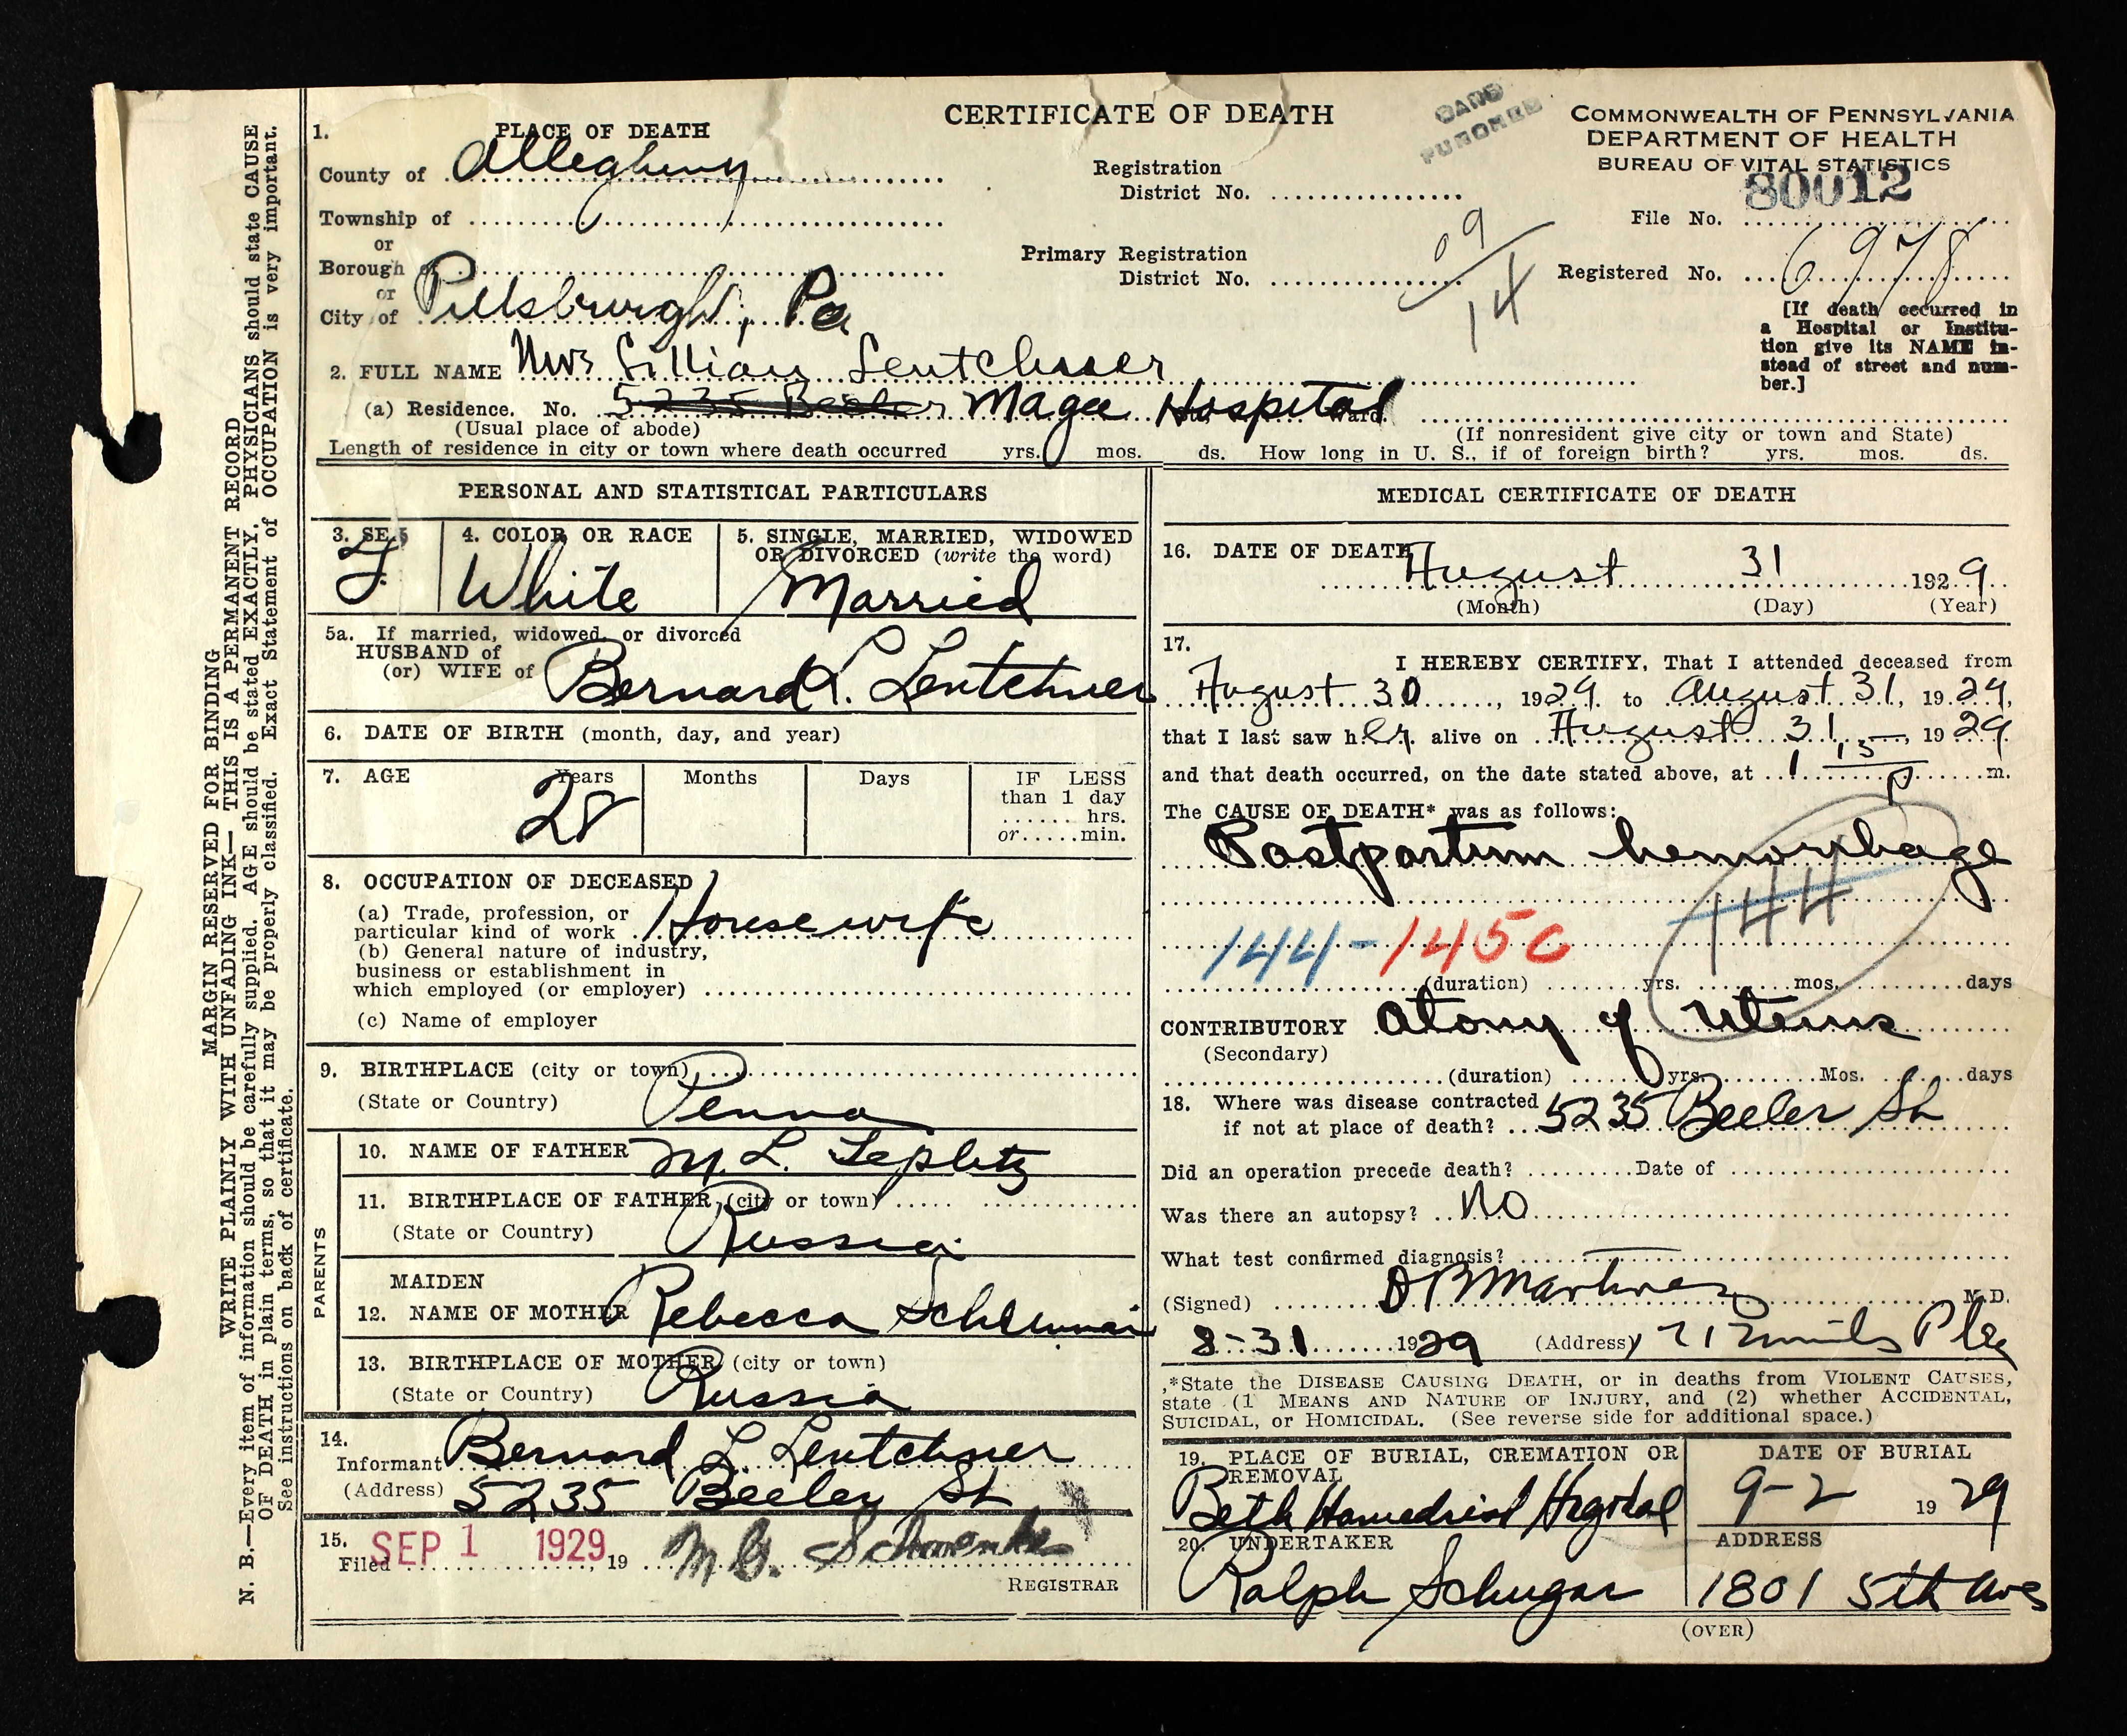 CERTIFICATE OF DEATH
COMMONWEALTH OF PENNSYLVANIA
DEPARTMENT OF HEALTH
BUREAU OF VITAL STATISTICS
1. PLACE OF DEATH
County of Allegheny
Township of
or
Borough of
or
City of Pittsburgh, Pa
Registration
District No.
Primary Registration
District No.
09
14
File No. 80012
Registered No. 6978
[If death occurred in
a Hospital or Institu-
tion give its NAME in-
stead of street and num-
ber.]
2. FULL NAME Mrs Lillian Lentchner
(a) Residence. No. 5235 Beeler Magee Hospital Ward.
(Usual place of abode) (If nonresident give city or town and State)
Length of residence in city or town where death occurred yrs. mos. ds. How long in U. S., if of foreign birth? yrs. mos. ds.
PERSONAL AND STATISTICAL PARTICULARS
3. SEX 4. COLOR OR RACE 5. SINGLE, MARRIED, WIDOWED
OR DIVORCED (write the word)
F White Married
5a. If married, widowed, or divorced
HUSBAND of
(or) WIFE of Bernard L. Lentchner
6. DATE OF BIRTH (month, day, and year)
7. AGE Years Months Days IF LESS
than 1 day
hrs.
or min.
28
8. OCCUPATION OF DECEASED
(a) Trade, profession, or
particular kind of work Housewife
(b) General nature of industry,
business or establishment in
which employed (or employer)
(c) Name of employer
9. BIRTHPLACE (city or town)
(State or Country) Penna
PARENTS
10. NAME OF FATHER M. L. Teplitz
11. BIRTHPLACE OF FATHER (city or town)
(State or Country) Russia
MAIDEN
12. NAME OF MOTHER Rebecca
13. BIRTHPLACE OF MOTHER (city or town)
(State or Country) Russia
14.
Informant Bernard L. Lentchner
(Address) 5235 Beeler St
15.
Filed SEP 1 1929, 19 M. G.
REGISTRAR
MEDICAL CERTIFICATE OF DEATH
16. DATE OF DEATH
August 31 1929
(Month) (Day) (Year)
17.
I HEREBY CERTIFY, That I attended deceased from
August 30, 1929 to August 31, 1929,
that I last saw her alive on August 31, 1929
and that death occurred, on the date stated above, at 1 15 P m.
The CAUSE OF DEATH* was as follows:
Postpartum hemorrhage
144
144-145c
(duration) yrs. mos. days
CONTRIBUTORY Atony of Uterus
(Secondary)
(duration) yrs. Mos. days
18. Where was disease contracted
if not at place of death? 5235 Beeler St
Did an operation precede death? Date of
Was there an autopsy? No
What test confirmed diagnosis?
(Signed) M.D.
8-31 1929 (Address)
*State the DISEASE CAUSING DEATH, or in deaths from VIOLENT CAUSES,
state (1 MEANS AND NATURE OF INJURY, and (2) whether ACCIDENTAL,
SUICIDAL, or HOMICIDAL. (See reverse side for additional space.)
19. PLACE OF BURIAL, CREMATION OR
REMOVAL
Beth Hamedrish Hagodol
DATE OF BURIAL
9-2 1929
20. UNDERTAKER
Ralph Schugar
ADDRESS
1801 5th Ave
(OVER)
MARGIN RESERVED FOR BINDING
WRITE PLAINLY WITH UNFADING INK— THIS IS A PERMANENT RECORD
N. B.—Every item of information should be carefully supplied. AGE should be stated EXACTLY. PHYSICIANS should state CAUSE
OF DEATH in plain terms, so that it may be properly classified. Exact Statement of OCCUPATION is very important.
See instructions on back of certificate.